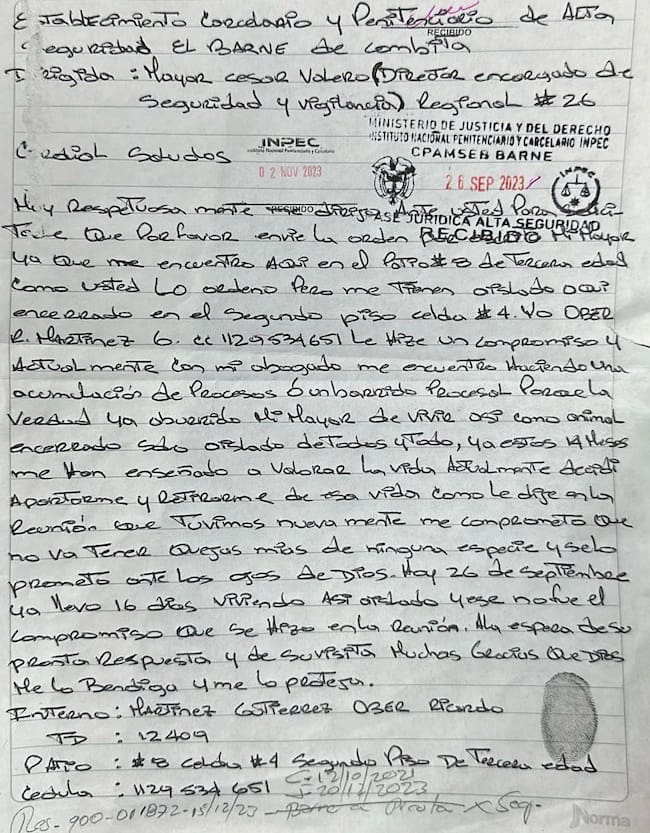 Establecimiento Carcelario y Penitenciario de Alta
RECIBIDO
Seguridad EL BARNE de Combita
Dirigida : Mayor Cesar Valero (Director encargado de
Seguridad y vigilancia) Regional # 26
MINISTERIO DE JUSTICIA Y DEL DERECHO
INSTITUTO NACIONAL PENITENCIARIO Y CARCELARIO INPEC
CPAMSEB BARNE
Cordial Saludos
INPEC
Instituto Nacional Penitenciario y Carcelario
02 NOV 2023
RECIBIDO
26 SEP 2023
INPEC
JURIDICA ALTA SEGURIDAD
RECIBIDO
Muy Respetuosa mente dirijo Ante Usted Para
Que Por favor envie la orden Mi Mayor
ya Que me encuentro AQui en el Patio # 8 de Tercera edad
Como usted Lo ordeno Pero me Tienen aislado aQui
encerrado en el Segundo piso celda #4. Yo OBER
R. MARTinez G. cc 1129534651 Le Hize un compromiso y
Actual mente con mi abogado me encuentro Haciendo una
acumulación de Procesos ó un barrido Procesal Porque la
Verdad ya aburrido Mi Mayor de vivir asi como animal
encerrado solo aislado de Todos y Todo, ya estos 14 Meses
me Han enseñado a Valorar La vida Actualmente decidi
Apartarme y Retirarme de esa vida como le dije en la
Reunión Que Tuvimos nueva mente me comprometo Que
no va Tener Quejas mias de ninguna especie y se lo
prometo ante Los ojos de Dios. Hoy 26 de Septiembre
ya llevo 16 dias viviendo Asi aislado y ese no fue el
compromiso Que se Hizo en la Reunión. A la espera de su
pronta Respuesta y de su visita Muchas Gracias Que Dios
Me Lo Bendiga y me lo proteja.
Interno : MARTinez GuTierrez OBER Ricardo
TD : 12409
PATio : # 8 Celda #4 Segundo Piso De Tercera edad
Cedula : 1129 534 651
C- 12/10/2021
S- 20/12/2023
Res- 900-011872-15/12/23 - Barne a Picota x Seg-
Norma